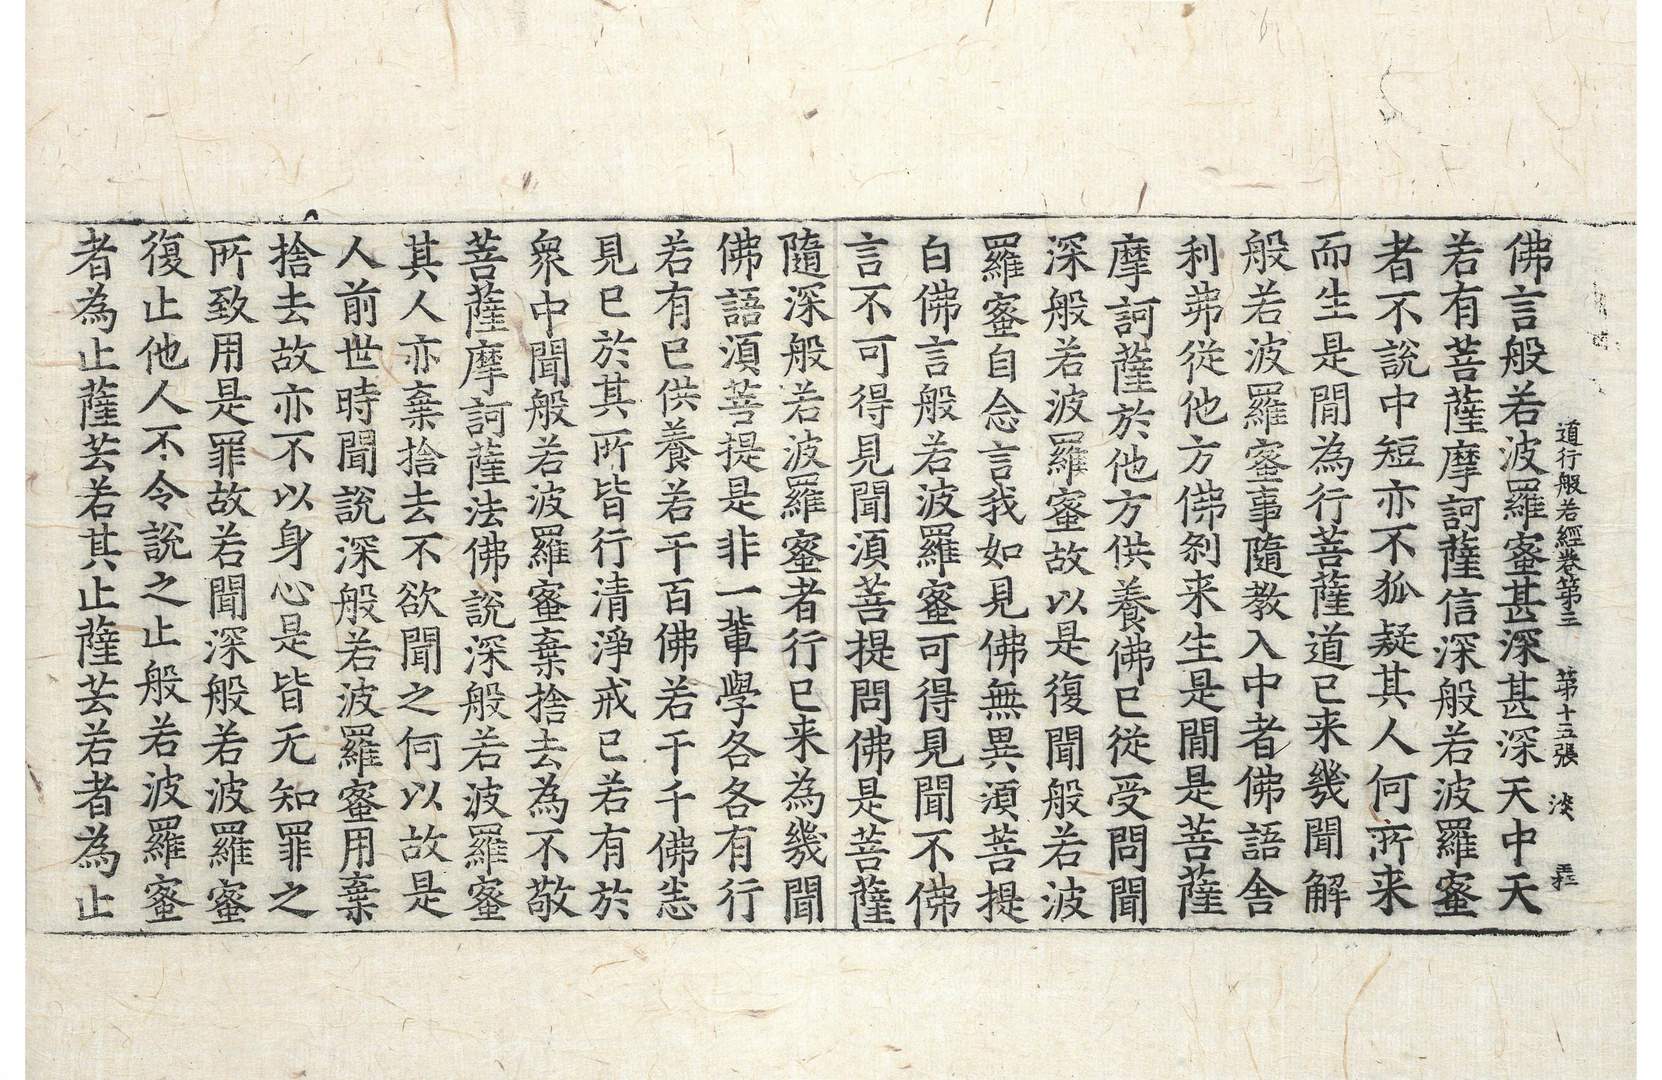 道行般若經卷第三 第十五張 淡
佛言般若波羅蜜甚深甚深天中天
若有菩薩摩訶薩信深般若波羅蜜
者不說中短亦不狐疑其人何所来
而生是閒為行菩薩道已来幾聞解
般若波羅蜜事隨教入中者佛語舍
利弗從他方佛剎来生是閒是菩薩
摩訶薩於他方供養佛已從受問聞
深般若波羅蜜故以是復聞般若波
羅蜜自念言我如見佛無異湏菩提
白佛言般若波羅蜜可得見聞不佛
言不可得見聞湏菩提問佛是菩薩
隨深般若波羅蜜者行已来為幾聞
佛語湏菩提是非一輩學各各有行
若有已供養若干百佛若干千佛悉
見已於其所皆行清淨戒已若有於
衆中聞般若波羅蜜棄捨去為不敬
菩薩摩訶薩法佛說深般若波羅蜜
其人亦棄捨去不欲聞之何以故是
人前世時聞說深般若波羅蜜用棄
捨去故亦不以身心是皆无知罪之
所致用是罪故若聞深般若波羅蜜
復止他人不令說之止般若波羅蜜
者為止薩芸若其止薩芸若者為止